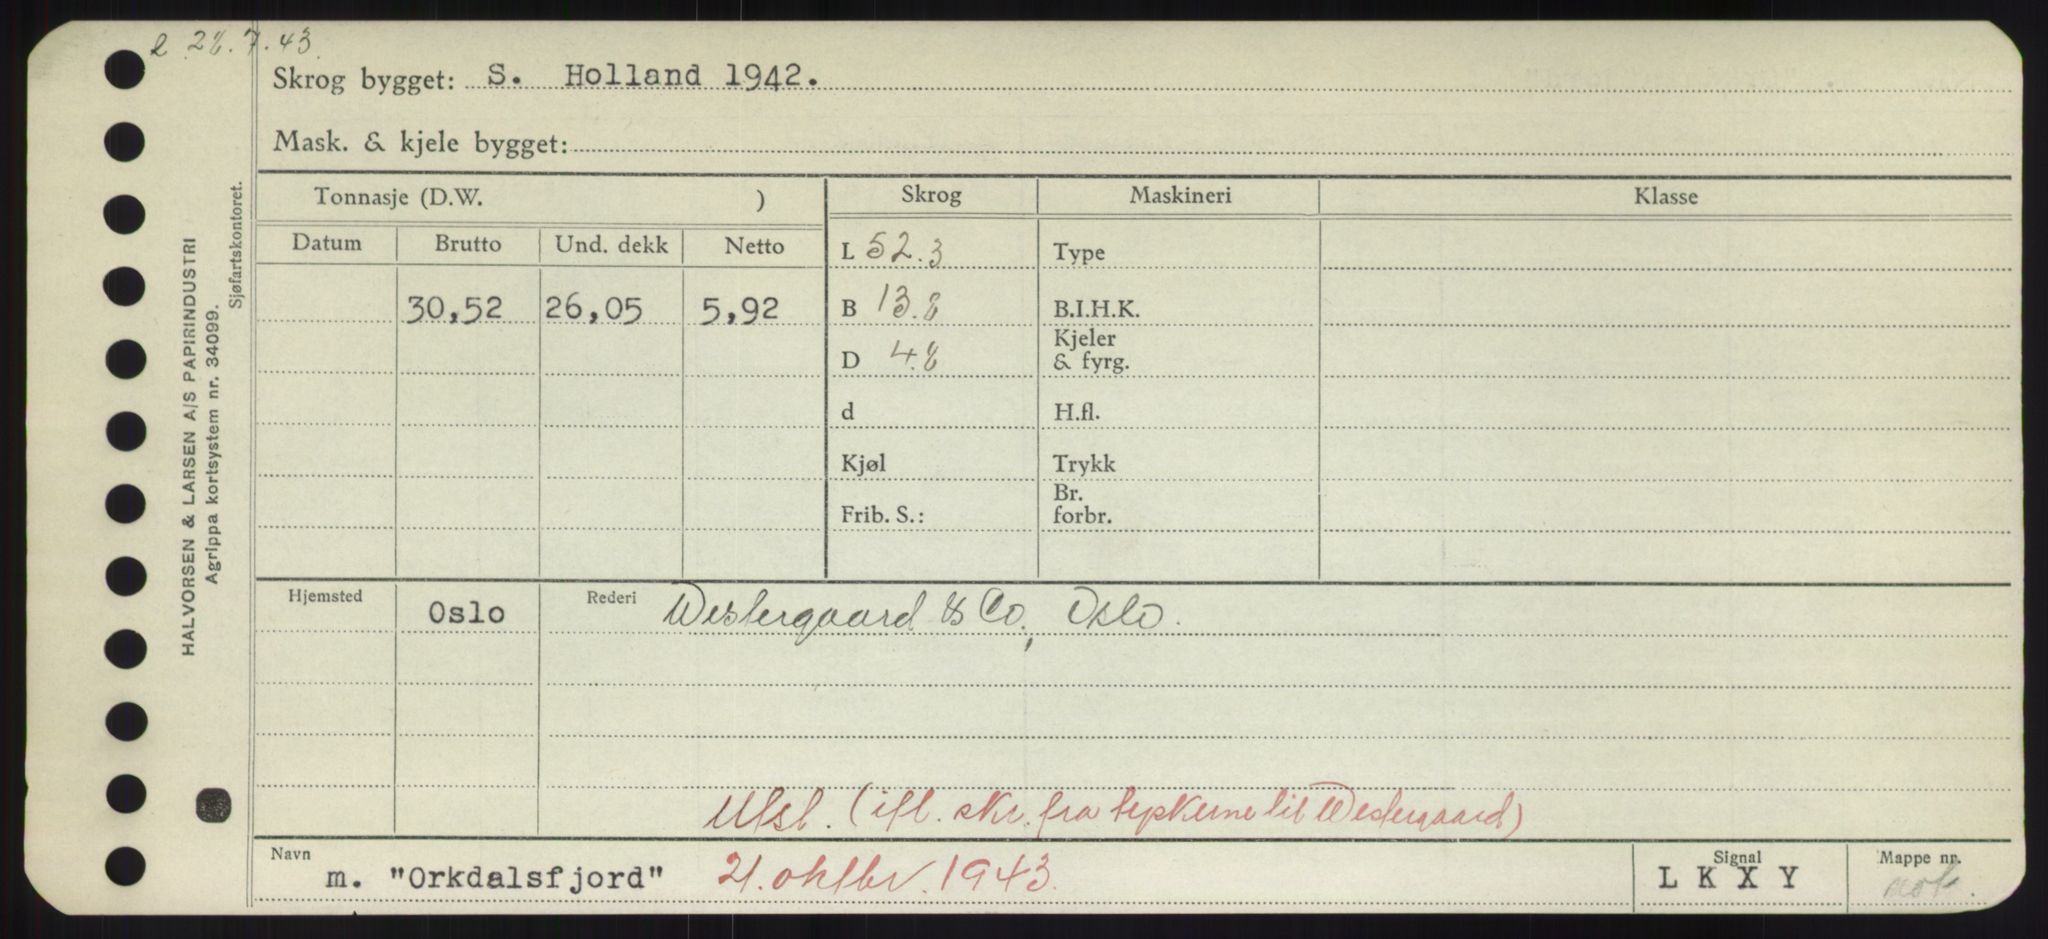 28.7.43
Skrog bygget: S. Holland 1942.
Mask. & kjele bygget:
Tonnasje (D.W. ) Skrog Maskineri Klasse
Datum Brutto Und. dekk Netto L 52.3 Type
30,52 26,05 5,92 B 13.8 B.I.H.K.
D 4.8 Kjeler & fyrg.
d H.fl.
Kjøl Trykk
Frib. S.: Br. forbr.
Hjemsted Oslo Rederi Westergaard & Co., Oslo.
Utsl. (ifl. skr. fra tyskerne til Westergaard)
Navn m. "Orkdalsfjord" 21. oktbr. 1943. Signal LKXY Mappe nr.
HALVORSEN & LARSEN A/S PAPIRINDUSTRI
Agrippa kortsystem nr. 34099.
Sjøfartskontoret.